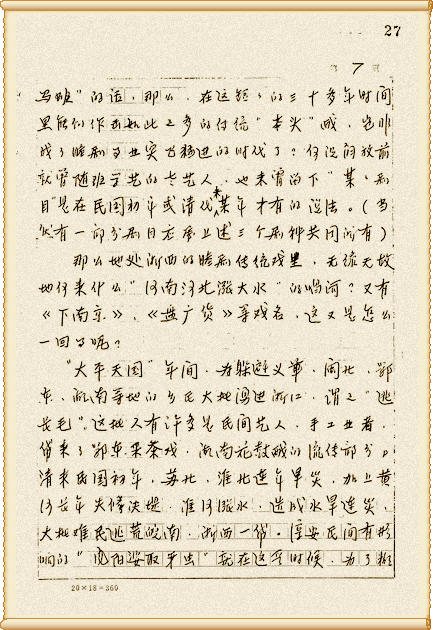 27
第 7 页
写娘”的话,那么,在这短短的三十多年时间
里能创作出如此之多的传统“本头”戏,岂非
成了睦剧事业突飞猛进的时代了?但没解放前
就曾随班学艺的老艺人,也未曾留下“某某剧
目”是在民国初年或清代末某年才有的说法。(当
然有一部分剧目应属上述三个剧种共同所有)
那么地处浙西的睦剧传统戏里,无缘无故
地何来什么“河南河北涨大水”的唱词?又有
《下南京》、《卖广货》等戏名,这又是怎么
一回事呢?
“太平天国”年间,为躲避义军,闽北、鄂
东、皖南等地的乡民大批涌进浙江,谓之“逃
长毛”。这批人有许多是民间艺人、手工业者,
带来了鄂东采茶戏、湖南花鼓戏的流传部分。
清末民国初年,苏北、淮北连年旱灾,加上黄
河长年失修决堤,淮河涨水,造成水旱连灾,
大批难民逃荒皖南、浙西一带。淳安民间有影
响的“凤阳婆取牙虫”就在这个时候,为了糊
20×18=360